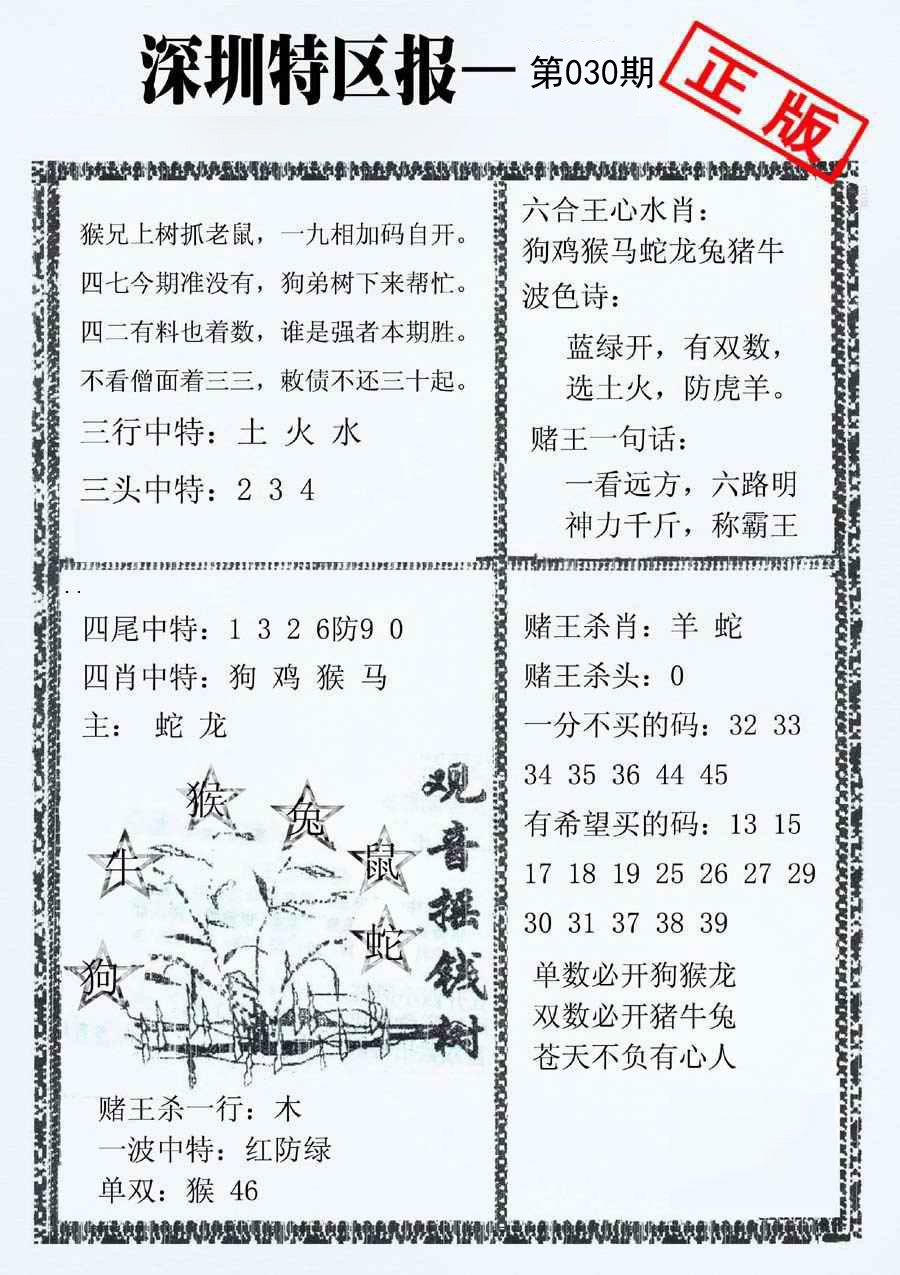 深圳特区报—第030期
正版
猴兄上树抓老鼠，一九相加码自开。
四七今期准没有，狗弟树下来帮忙。
四二有料也着数，谁是强者本期胜。
不看僧面着三三，敕债不还三十起。
三行中特：土 火 水
三头中特：2 3 4
六合王心水肖：
狗鸡猴马蛇龙兔猪牛
波色诗：
蓝绿开，有双数，
选土火，防虎羊。
赌王一句话：
一看远方，六路明
神力千斤，称霸王
..
四尾中特：1 3 2 6防9 0
四肖中特：狗 鸡 猴 马
主： 蛇 龙
猴
兔
牛
鼠
蛇
狗
观音摇钱树
赌王杀一行：木
一波中特：红防绿
单双：猴 46
赌王杀肖：羊 蛇
赌王杀头：0
一分不买的码：32 33
34 35 36 44 45
有希望买的码：13 15
17 18 19 25 26 27 29
30 31 37 38 39
单数必开狗猴龙
双数必开猪牛兔
苍天不负有心人